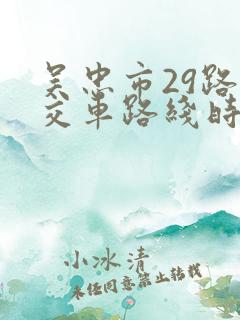 吴忠市29路
交车路线时
小冰清
未经同意禁止转载